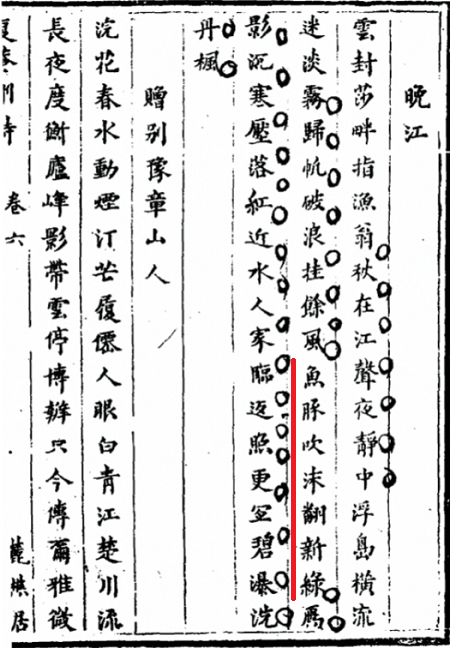 晚江
雲封莎畔指漁翁秋在江聲夜靜中浮島橫流
迷淡霧歸帆破浪挂餘風魚豚吹沫翻新綠鴈
影沉寒壓落紅近水人家臨返照更宜碧瀑洗
丹楓
贈別豫章山人
浣花春水動煙汀芒履僊人眼白青江楚川流
長夜度衡廬峰影帶雲停博辯只今傳爾雅微
詩 卷六 居